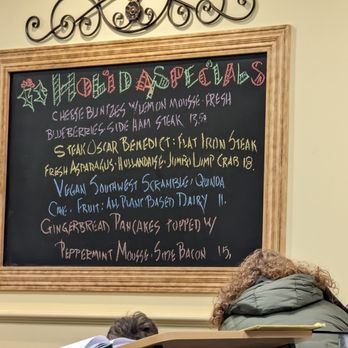 Holiday Specials
Cheese Blintzes w/Lemon Mousse. Fresh
Blueberries. Side Ham Steak 13.50
Steak Oscar Benedict: Flat Iron Steak
Fresh Asparagus. Hollandaise, Jumbo Lump Crab 18.
Vegan Southwest Scramble, Quinoa
Cake. Fruit: All Plant Based Dairy 11.
Gingerbread Pancakes topped w/
Peppermint Mousse. Side Bacon 15,